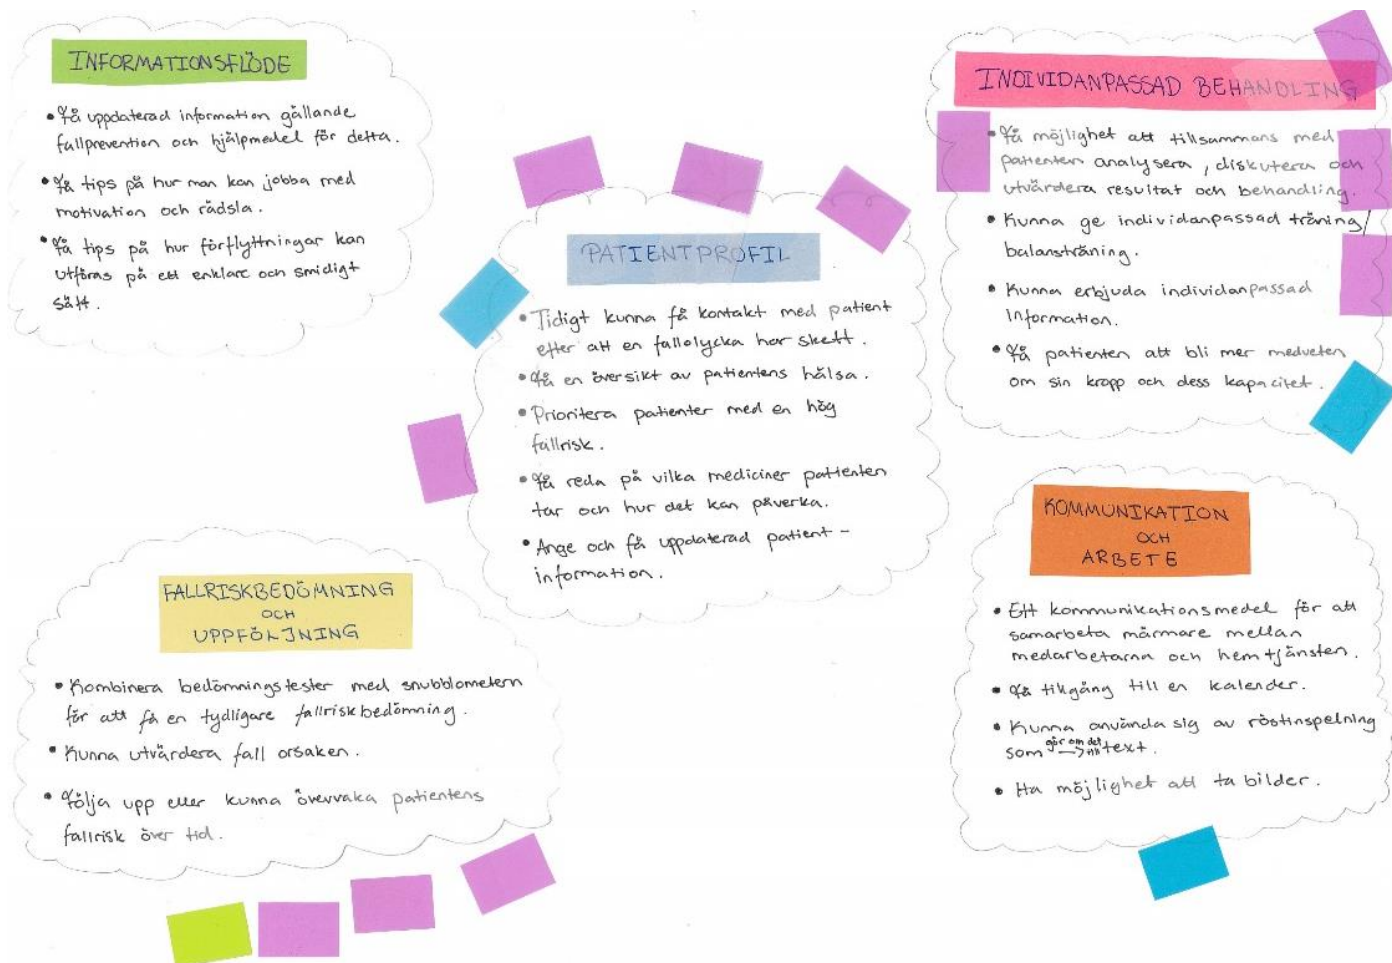 INFORMATIONSFLÖDE
• Få uppdaterad information gällande
fallprevention och hjälpmedel för detta.
• Få tips på hur man kan jobba med
motivation och rädsla.
• Få tips på hur förflyttningar kan
utföras på ett enklare och smidigt
sätt.
PATIENTPROFIL
• Tidigt kunna få kontakt med patient
efter att en fallolycka har skett.
• Få en översikt av patientens hälsa.
• Prioritera patienter med en hög
fallrisk.
• Få reda på vilka mediciner patienten
tar och hur det kan påverka.
• Ange och få uppdaterad patient-
information.
INDIVIDANPASSAD BEHANDLING
• Få möjlighet att tillsammans med
patienten analysera, diskutera och
utvärdera resultat och behandling.
• Kunna ge individanpassad träning/
balansträning.
• Kunna erbjuda individanpassad
Information.
• Få patienten att bli mer medveten
om sin kropp och dess kapacitet.
FALLRISKBEDÖMNING
OCH
UPPFÖLJNING
• Kombinera bedömningstester med snubblometern
för att få en tydligare fallriskbedömning.
• Kunna utvärdera fall orsaken.
• Följa upp eller kunna övervaka patientens
fallrisk över tid.
KOMMUNIKATION
OCH
ARBETE
• Ett kommunikationsmedel för att
samarbeta närmare mellan
medarbetarna och hemtjänsten.
• Få tillgång till en kalender.
• Kunna använda sig av röstinspelning
som gör om det till → text.
• Ha möjlighet att ta bilder.